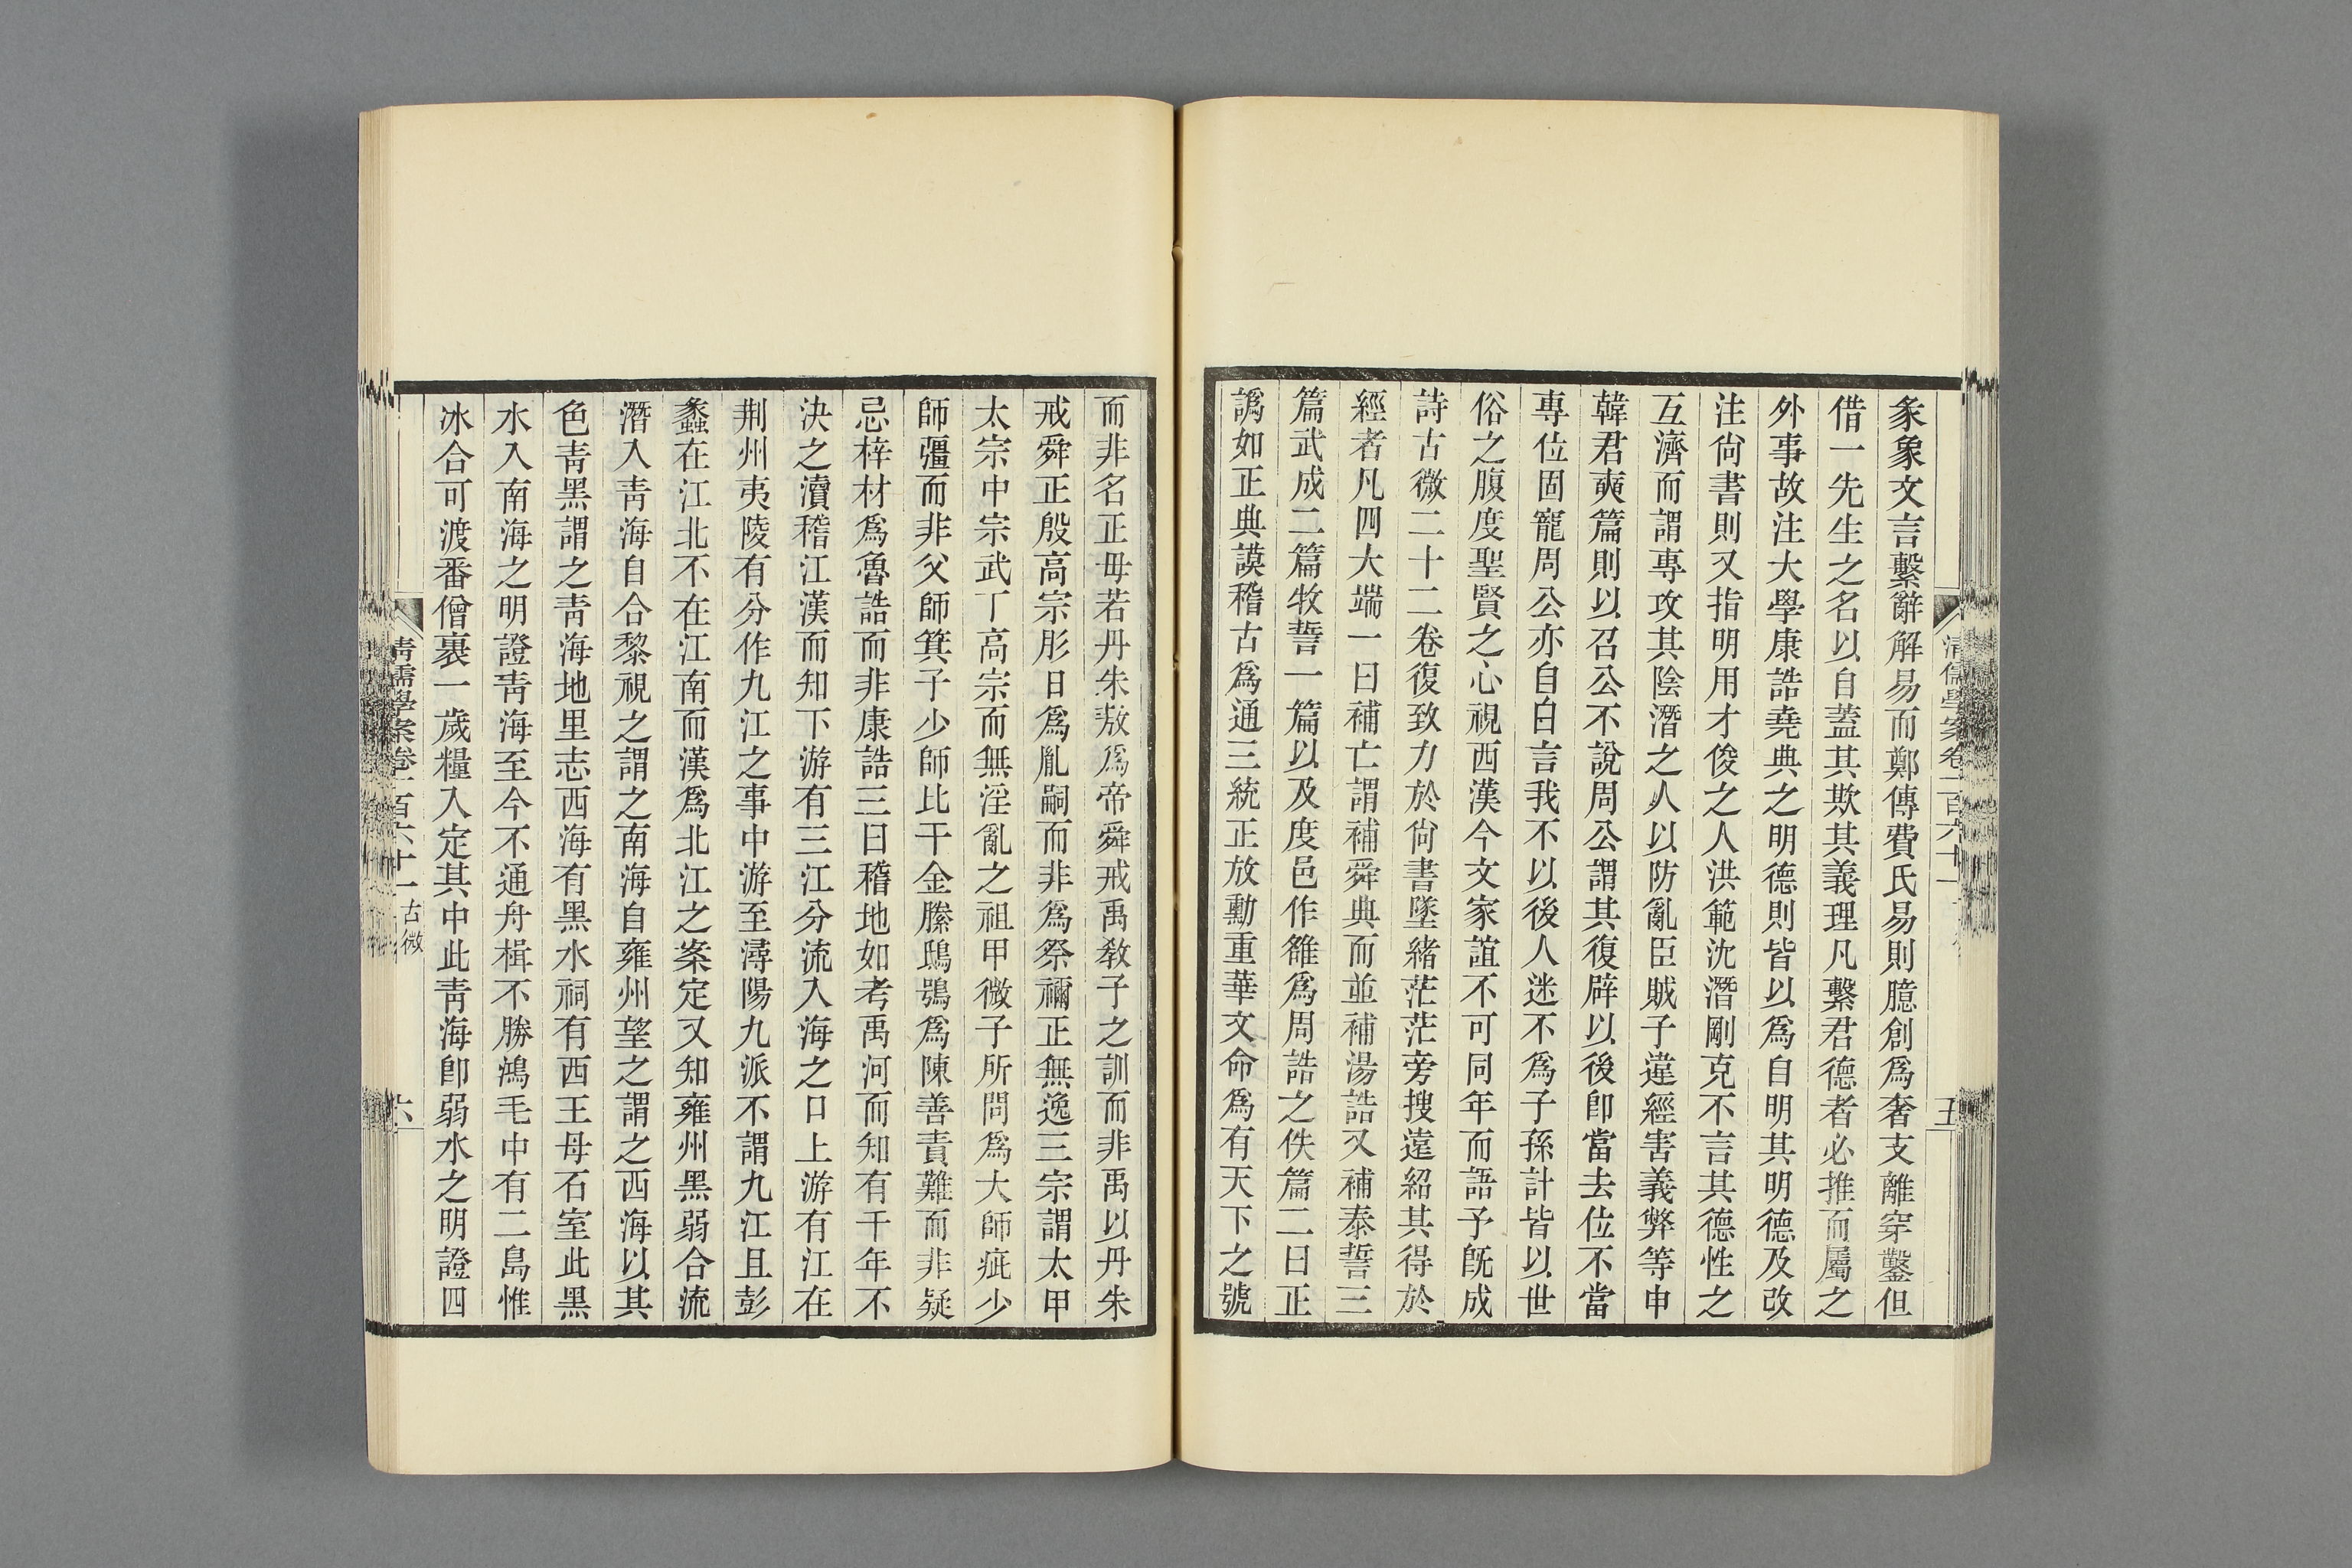 彖象文言繫辭解易而鄭傳費氏易則臆創爲奢支離穿鑿但
借一先生之名以自蓋其欺其義理凡繫君德者必推而屬之
外事故注大學康誥堯典之明德則皆以爲自明其明德及改
注尙書則又指明用才俊之人洪範沈潛剛克不言其德性之
互濟而謂專攻其陰潛之人以防亂臣賊子違經害義弊等申
韓君奭篇則以召公不說周公謂其復辟以後卽當去位不當
專位固寵周公亦自白言我不以後人迷不爲子孫計皆以世
俗之腹度聖賢之心視西漢今文家誼不可同年而語予旣成
詩古微二十二卷復致力於尙書墜緒茫茫旁搜遠紹其得於
經者凡四大端一曰補亡謂補舜典而並補湯誥又補泰誓三
篇武成二篇牧誓一篇以及度邑作雒爲周誥之佚篇二曰正
譌如正典謨稽古爲通三統正放勳重華文命爲有天下之號
清儒學案卷一百六十一
五
而非名正毋若丹朱敖爲帝舜戒禹敎子之訓而非禹以丹朱
戒舜正殷高宗肜日爲胤嗣而非爲祭禰正無逸三宗謂太甲
太宗中宗武丁高宗而無淫亂之祖甲微子所問爲大師疵少
師彊而非父師箕子少師比干金縢鴟鴞爲陳善責難而非疑
忌梓材爲魯誥而非康誥三曰稽地如考禹河而知有千年不
決之瀆稽江漢而知下游有三江分流入海之口上游有江在
荆州夷陵有分作九江之事中游至潯陽九派不謂九江且彭
蠡在江北不在江南而漢爲北江之案定又知雍州黑弱合流
潛入靑海自合黎視之謂之南海自雍州望之謂之西海以其
色靑黑謂之靑海地里志西海有黑水祠有西王母石室此黑
水入南海之明證靑海至今不通舟楫不勝鴻毛中有二島惟
冰合可渡番僧裹一歲糧入定其中此靑海卽弱水之明證四
清儒學案卷一百六十一 古微
六